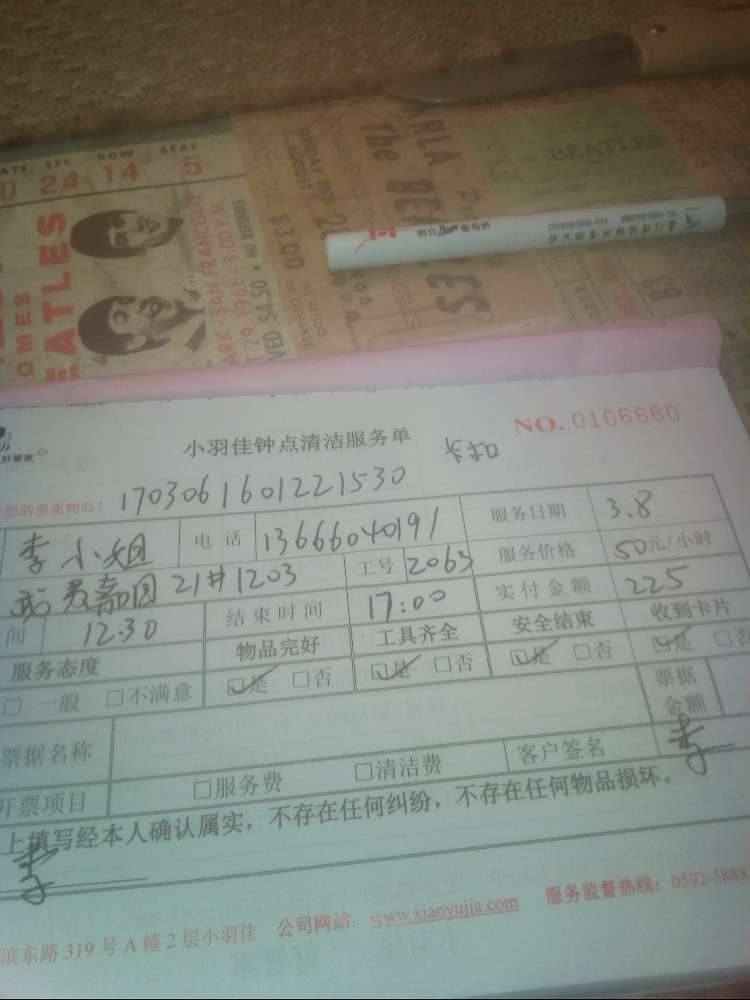 SEC ROW SEAT
24 14 5
The
BEATLES
SAN FRANCISCO
29, 1966 · 8:00 P.M.
$4.50 · NO REFUNDS
$3.00
NO. 0106660
小羽佳钟点清洁服务单
卡扣
好管家
您的贵重物品! 1703061601221530
李小姐 电话 13666040191 服务日期 3.8
21#1203 工号 2063 服务价格 50元/小时
间 12.30 结束时间 17:00 实付金额 225
服务态度 物品完好 工具齐全 安全结束 收到卡片
□ 一般 □不满意 ☑是 □否 ☑是 □否 ☑是 □否 ☑是 □否
票据名称 票据金额
开票项目 □服务费 □清洁费 客户签名 李
上填写经本人确认属实，不存在任何纠纷，不存在任何物品损坏。
李
滨东路319号A幢2层小羽佳 公司网站：www.xiaoyujia.com 服务监督热线：0592-5888